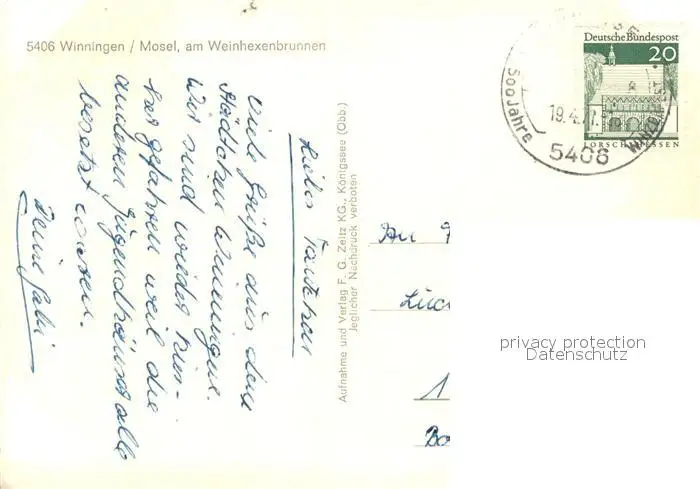 5406 Winningen / Mosel, am Weinhexenbrunnen
Liebes Tantchen
viele Grüße aus dem
Städtchen Winningen.
Wir sind wieder hier-
her gefahren weil die
anderen Jugendhäuser alle
besetzt waren.
Deine Gabi
Aufnahme und Verlag F. G. Zeitz KG., Königssee (Obb.)
Jeglicher Nachdruck verboten
Deutsche Bundespost
20
LORSCH/HESSEN
500 Jahre
19.4.71
5406
An
1
privacy protection
Datenschutz